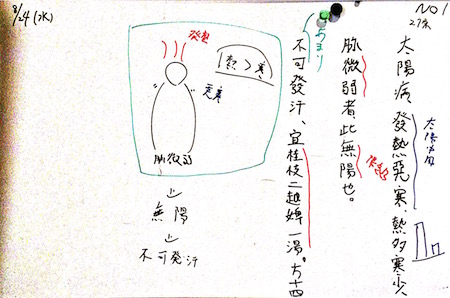 8/24(水)
NO1
27条
太陽病、發熱惡寒、熱多寒少、
脉微弱者、此無陽也。
不可發汗、宜桂枝二越婢一湯。方十四
つまり
發熱
熱>寒
惡寒
脉微弱
↓
無陽
↓
不可発汗